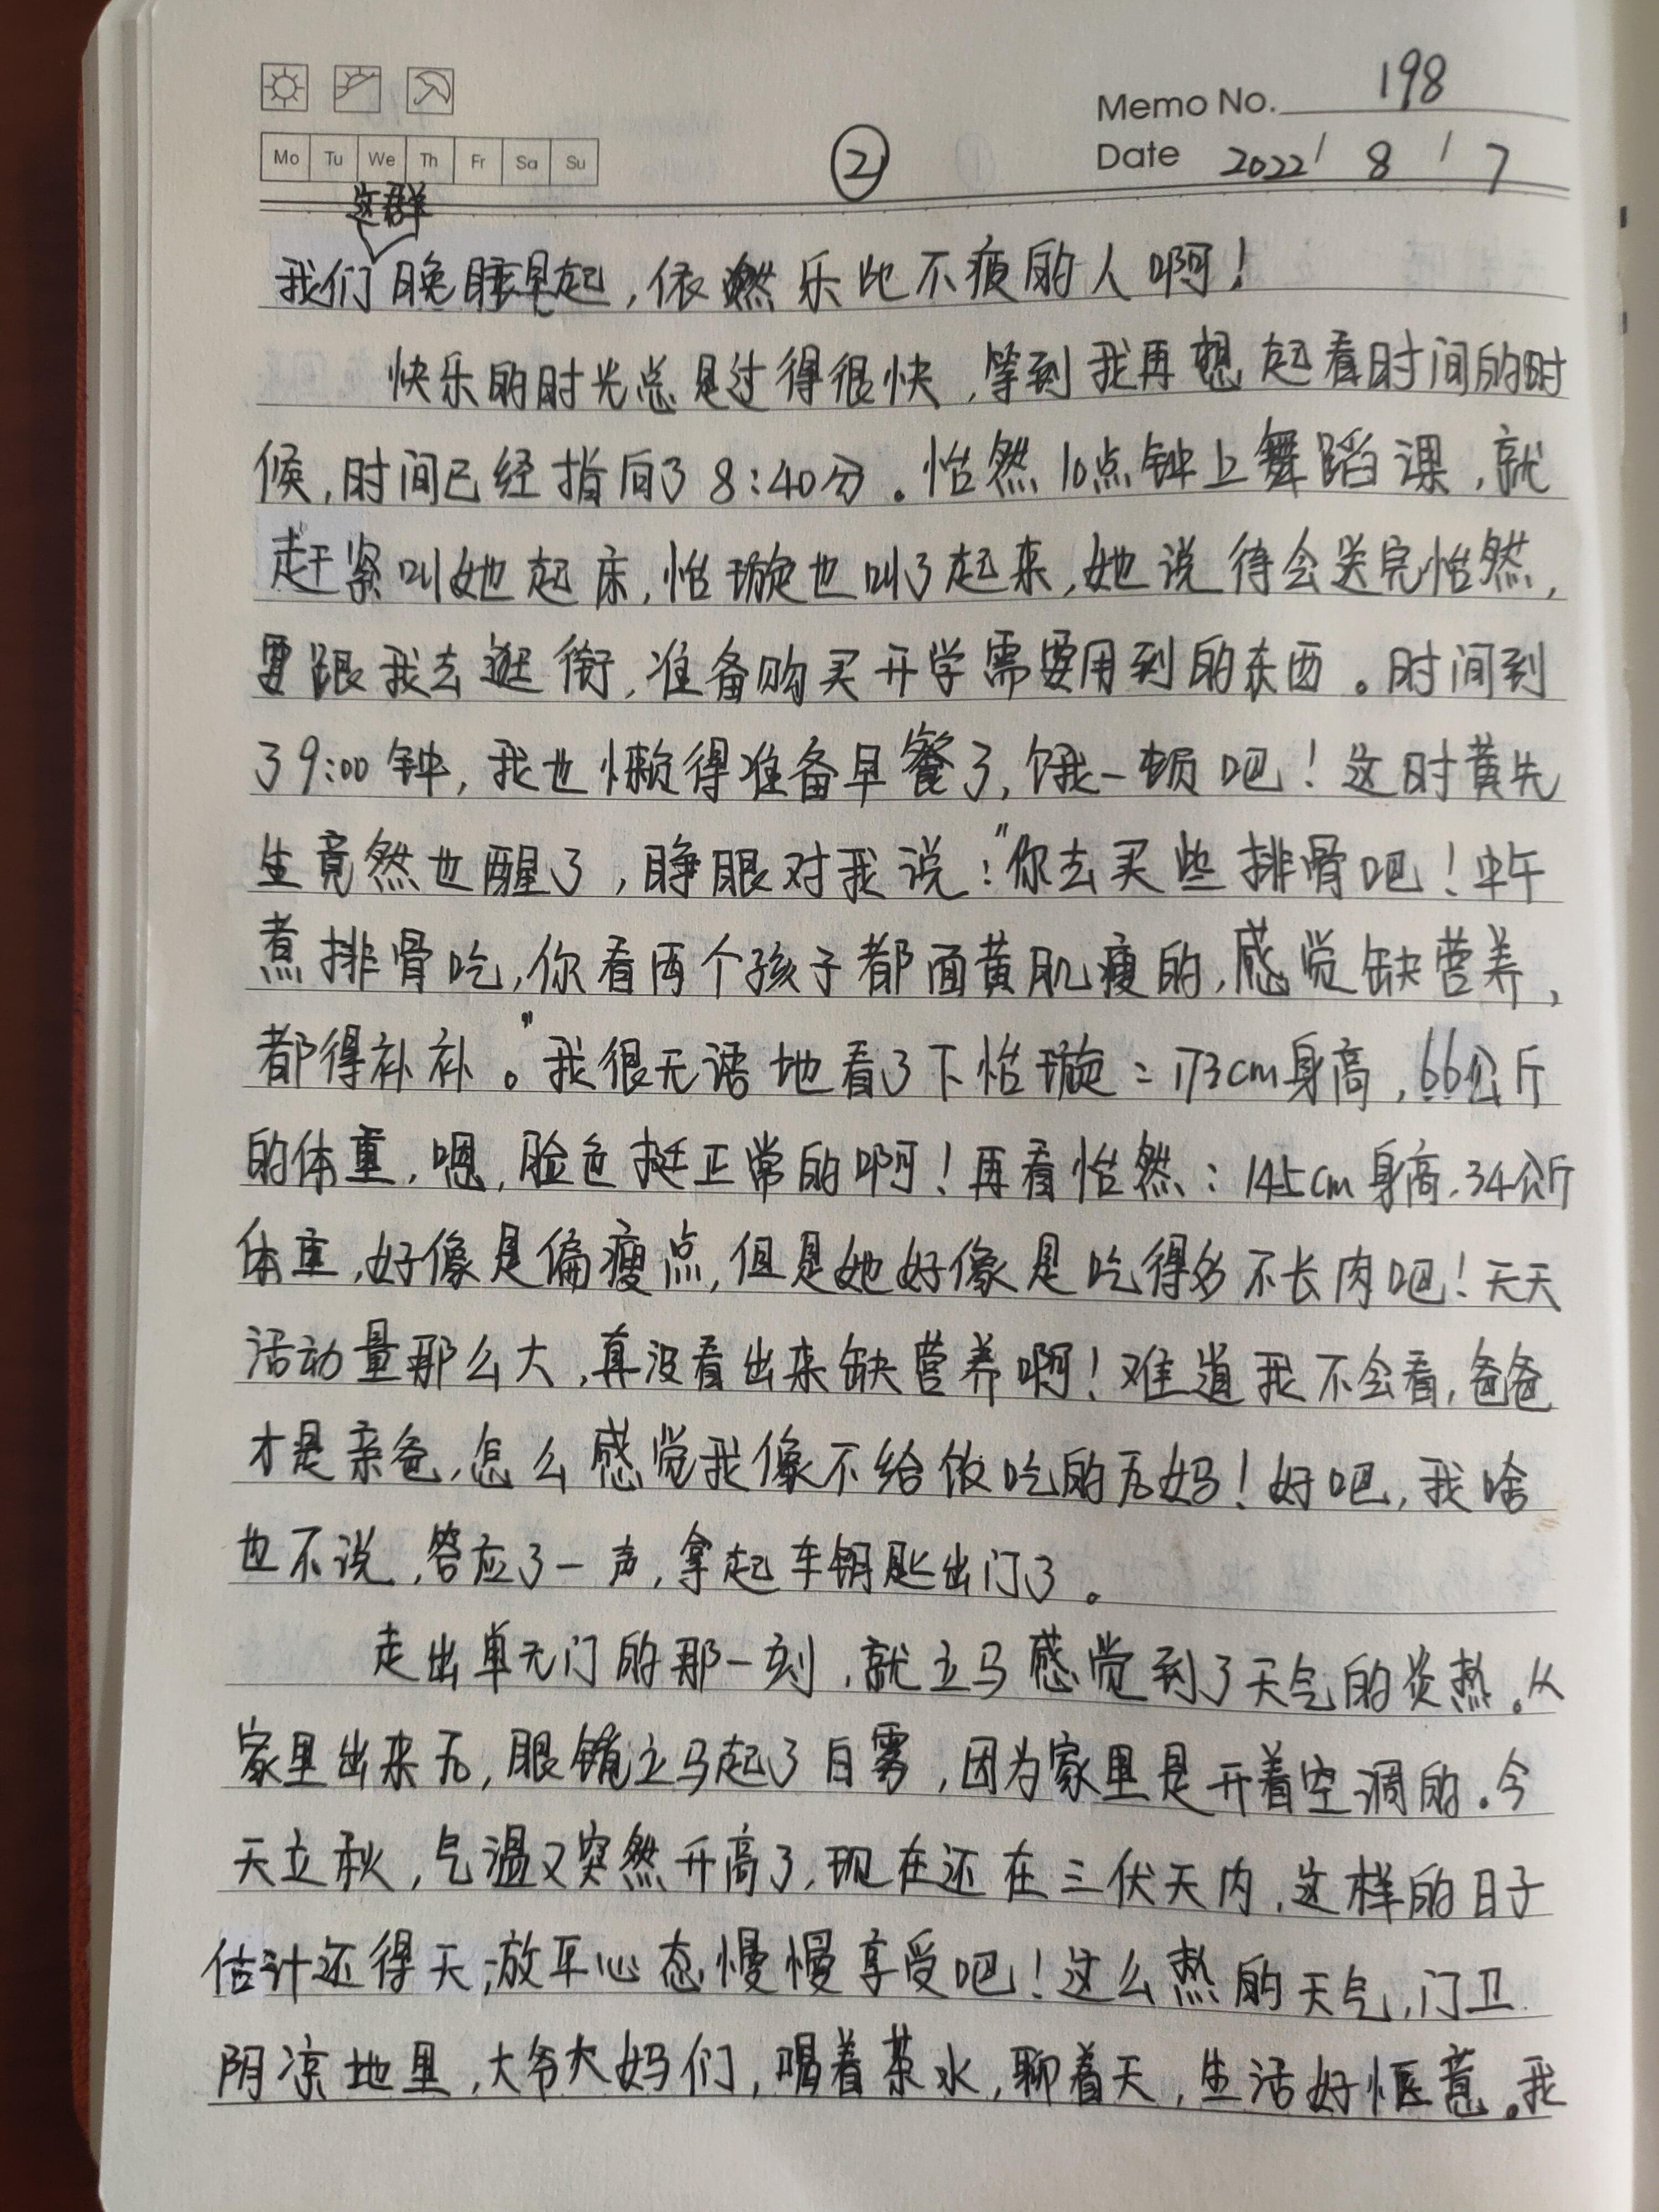 Memo No. 198
Mo Tu We Th Fr Sa Su
②
Date 2022/8/7
这群
我们晚睡早起，依然乐此不疲的人啊！
快乐的时光总是过得很快，等到我再想起看时间的时
候，时间已经指向了8:40分。怡然10点钟上舞蹈课，就
赶紧叫她起床，怡璇也叫了起来，她说待会送完怡然，
要跟我去逛街，准备购买开学需要用到的东西。时间到
了9:00钟，我也懒得准备早餐了，饿一顿吧！这时黄先
生竟然也醒了，睁眼对我说："你去买些排骨吧！中午
煮排骨吃，你看两个孩子都面黄肌瘦的，感觉缺营养，
都得补补。"我很无语地看了下怡璇：173cm身高，66公斤
的体重，嗯，脸色挺正常的啊！再看怡然：145cm身高，34公斤
体重，好像是偏瘦点，但是她好像是吃得多不长肉吧！天天
活动量那么大，真没看出来缺营养啊！难道我不会看，爸爸
才是亲爸，怎么感觉我像不给饭吃的后妈！好吧，我啥
也不说，答应了一声，拿起车钥匙出门了。
走出单元门的那一刻，就立马感觉到了天气的炎热。从
家里出来后，眼镜立马起了白雾，因为家里是开着空调的。今
天立秋，气温又突然升高了，现在还在三伏天内，这样的日子
估计还得天，放平心态慢慢享受吧！这么热的天气，门卫
阴凉地里，大爷大妈们，喝着茶水，聊着天，生活好惬意。我